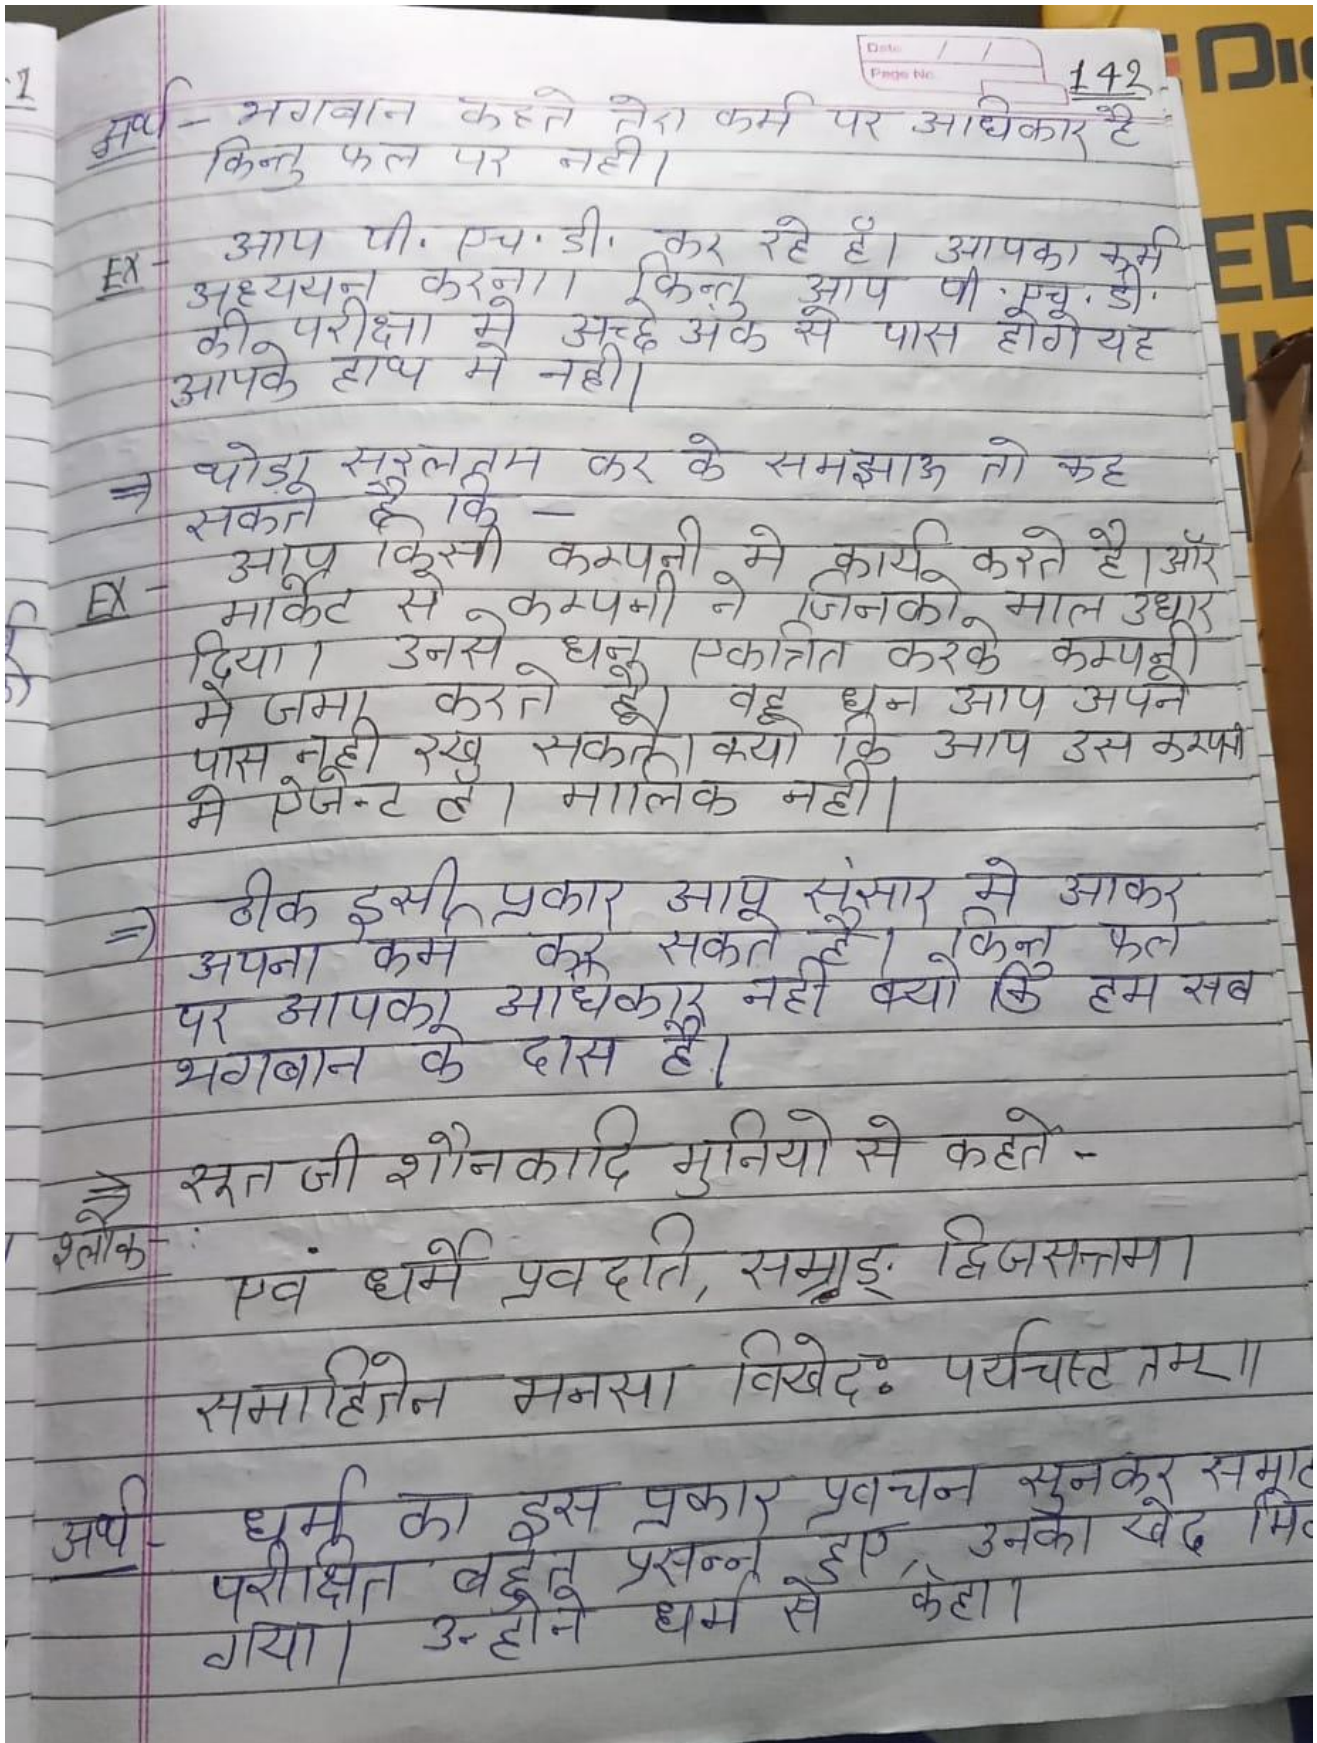 Date / /
Page No.
142
-1
अर्थ - भगवान कहते तेरा कर्म पर अधिकार है
किन्तु फल पर नही।
EX - आप पी. एच. डी. कर रहे हैं। आपका कर्म
अध्ययन करना। किन्तु आप पी. एच. डी.
की परीक्षा मे अच्छे अंक से पास होगे यह
आपके हाथ मे नही।
⇒ थोड़ा सरलतम कर के समझाऊ तो कह
सकते है कि -
EX - आप किसी कम्पनी मे कार्य करते है। और
मार्केट से कम्पनी ने जिनको माल उधार
दिया। उनसे धन एकत्रित करके कम्पनी
मे जमा करते है। वह धन आप अपने
पास नही रख सकते। क्यो कि आप उस कम्पनी
मे एजेन्ट है। मालिक नही।
⇒ ठीक इसी प्रकार आप संसार मे आकर
अपना कर्म कर सकते है। किन्तु फल
पर आपका अधिकार नही क्यो कि हम सब
भगवान के दास है।
⇒ सूत जी शौनकादि मुनियो से कहते -
श्लोक - :
एवं धर्मे प्रवदति, सम्राड् द्विजसत्तम।
समाहितेन मनसा विखेदः पर्यचष्ट तम्॥
अर्थ - धर्म का इस प्रकार प्रवचन सुनकर सम्राट
परीक्षित बहुत प्रसन्न हुए, उनका खेद मिट
गया। उन्होने धर्म से कहा।
Dig
ED